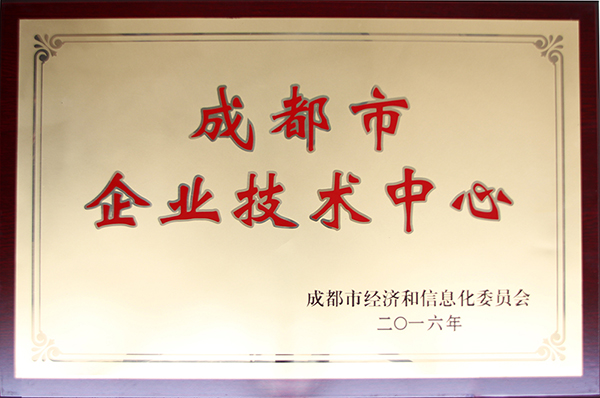 成都市
企业技术中心
成都市经济和信息化委员会
二〇一六年